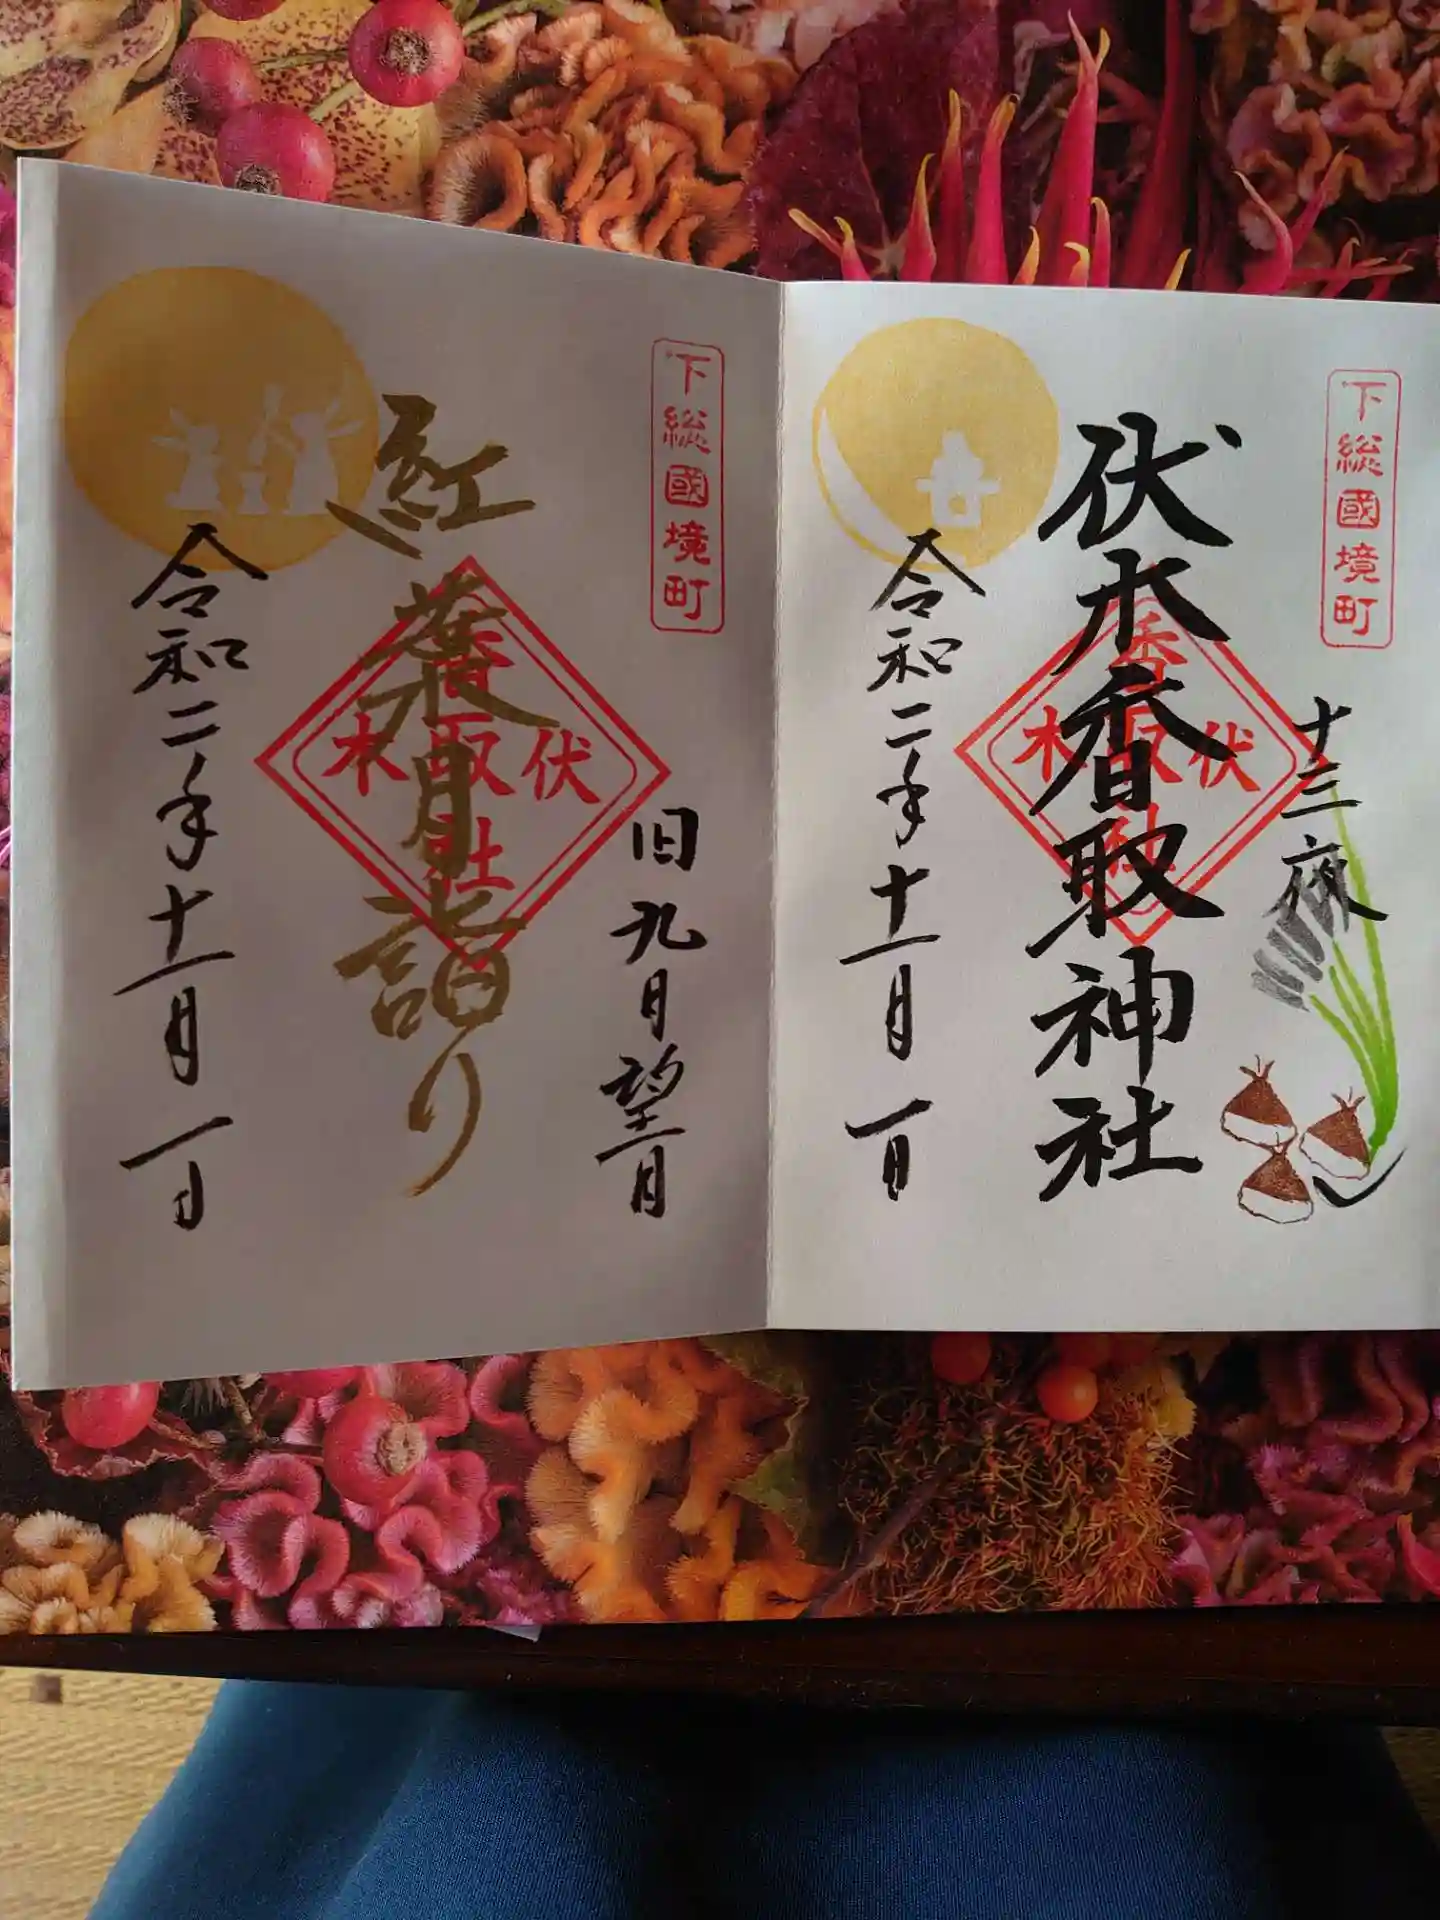 下総國境町
十三夜
伏木香取神社
香取神社
伏木
令和二年十一月一日
下総國境町
旧九月望月
紅葉月詣り
香取神社
伏木
令和二年十一月一日